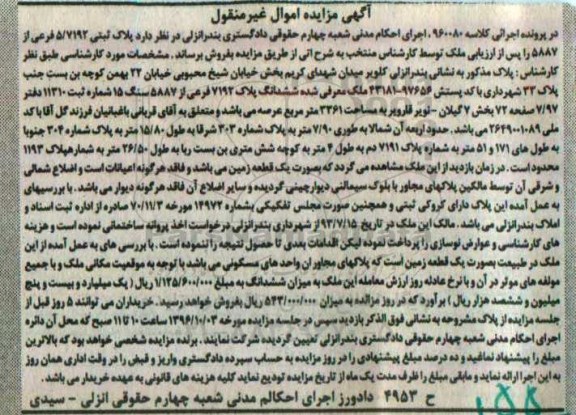 آگهی مزایده اموال غیرمنقول
در پرونده اجرائی کلاسه ۹۶۰۰۸۰ . اجرای احکام مدنی شعبه چهارم حقوقی دادگستری بندرانزلی در نظر دارد پلاک ثبتی ۵/۷۱۹۲ فرعی از
۵۸۸۷ را پس از ارزیابی ملک توسط کارشناس منتخب به شرح اتی از طریق مزایده بفروش برساند . مشخصات مورد کارشناسی طبق نظر
کارشناس : پلاک مذکور به نشانی بندرانزلی کلویر میدان شهدای کریم بخش خیابان شیخ محبوبی خیابان ۲۲ بهمن کوچه بن بست جنب
پلاک ۳۳ شهرداری با کد پستی ۹۷۶۵۶-۴۳۱۸۱ ملک معرفی شده ششدانگ پلاک ۷۱۹۲ فرعی از ۵۸۸۷ سنگ ۱۵ شماره ثبت ۱۱۳۱۰ دفتر
۷/۹۷ صفحه ۷۲ بخش ۷ گیلان - تویر قلرویر به مساحت ۳۳۶۱ متر مربع عرصه می باشد و متعلق به آقای قربانی باغبانیان فرزند گل آقا با کد
ملی ۲۶۴۹۰۱۰۸۹ می باشد . حدود اربعه آن شمالا به طوری ۷/۹۰ متر به پلاک شماره ۳۰۳ شرقا به طول ۱۵/۸۰ متر به پلاک شماره ۳۰۴ جنوبا
به طول های ۱۷۱ و ۵۱ متر به شماره پلاک ۷۱۹۱ دم به طول ۴ متر به کوچه شش متری بن بست ربا به طول ۲۶/۵۰ متر به شماره پلاک ۱۱۹۳
محدود است . در زمان بازدید از این ملک مشاهده می گردد که بصورت یک قطعه زمین می باشد و فاقد هرگونه اعیانات است و اضلاع شمالی
و شرقی آن توسط مالکین پلاکهای مجاور با بلوک سیمانی دیوارچینی گردیده و سایر اضلاع آن فاقد هرگونه دیوار می باشد . با بررسیهای
به عمل آمده این پلاک دارای کروکی ثبتی و همچنین صورت مجلس تفکیکی بشماره ۱۴۹۷۲ مورخه ۷۰/۱۱/۳ صادره از اداره ثبت اسناد و
املاک بندرانزلی می باشد . مالک این ملک در تاریخ ۹۳/۷/۱۵ از شهرداری بندرانزلی درخواست اخذ پروانه ساختمانی نموده است و هزینه
های کارشناسی و عوارض نوسازی را پرداخت نموده لیکن اقدامات بعدی تا حصول نتیجه را ننموده است . با بررسی های به عمل آمده از این
ملک در طبیعت بصورت یک قطعه زمین است که پلاکهای مجاوران واحد های مسکونی می باشد با توجه به موقعیت مکانی ملک و با جمیع
مولفه های موثر در آن و با نرخ عادله روز ارزش معامله این ملک به میزان ششدانگ به مبلغ ۱/۱۲۵/۶۰۰/۰۰۰ ریال ( یک میلیارد و بیست و پنج
میلیون و ششصد هزار ریال ) برآورد که در روز مزایده به میزان ۵۴۳/۰۰۰/۰۰۰ ریال بفروش خواهد رسید . خریداران می توانند ۵ روز قبل از
جلسه مزایده از پلاک مشروحه به نشانی فوق الذکر بازدید سپس در جلسه مزایده مورخه ۱۳۹۶/۱۰/۰۳ ساعت ۱۰ تا ۱۱ صبح که محل آن دائره
اجرای احکام مدنی شعبه چهارم حقوقی دادگستری بندرانزلی تعیین گردیده شرکت نمایند . برنده مزایده شخصی خواهد بود که بالاترین
مبلغ را پیشنهاد نمافید و ده درصد مبلغ پیشنهادی را در روز مزایده به حساب سپرده دادگستری واریز و قبض را در وقت اداری همان روز
به این اجرا ارائه نماید و مابقی مبلغ را ظرف مدت یک ماه از تاریخ مزایده تودیع نماید کلیه هزینه های قانونی به عهده خریدار می باشد .
ح ۴۹۵۳ دادورز اجرای احکام مدنی شعبه چهارم حقوقی انزلی - سیدی